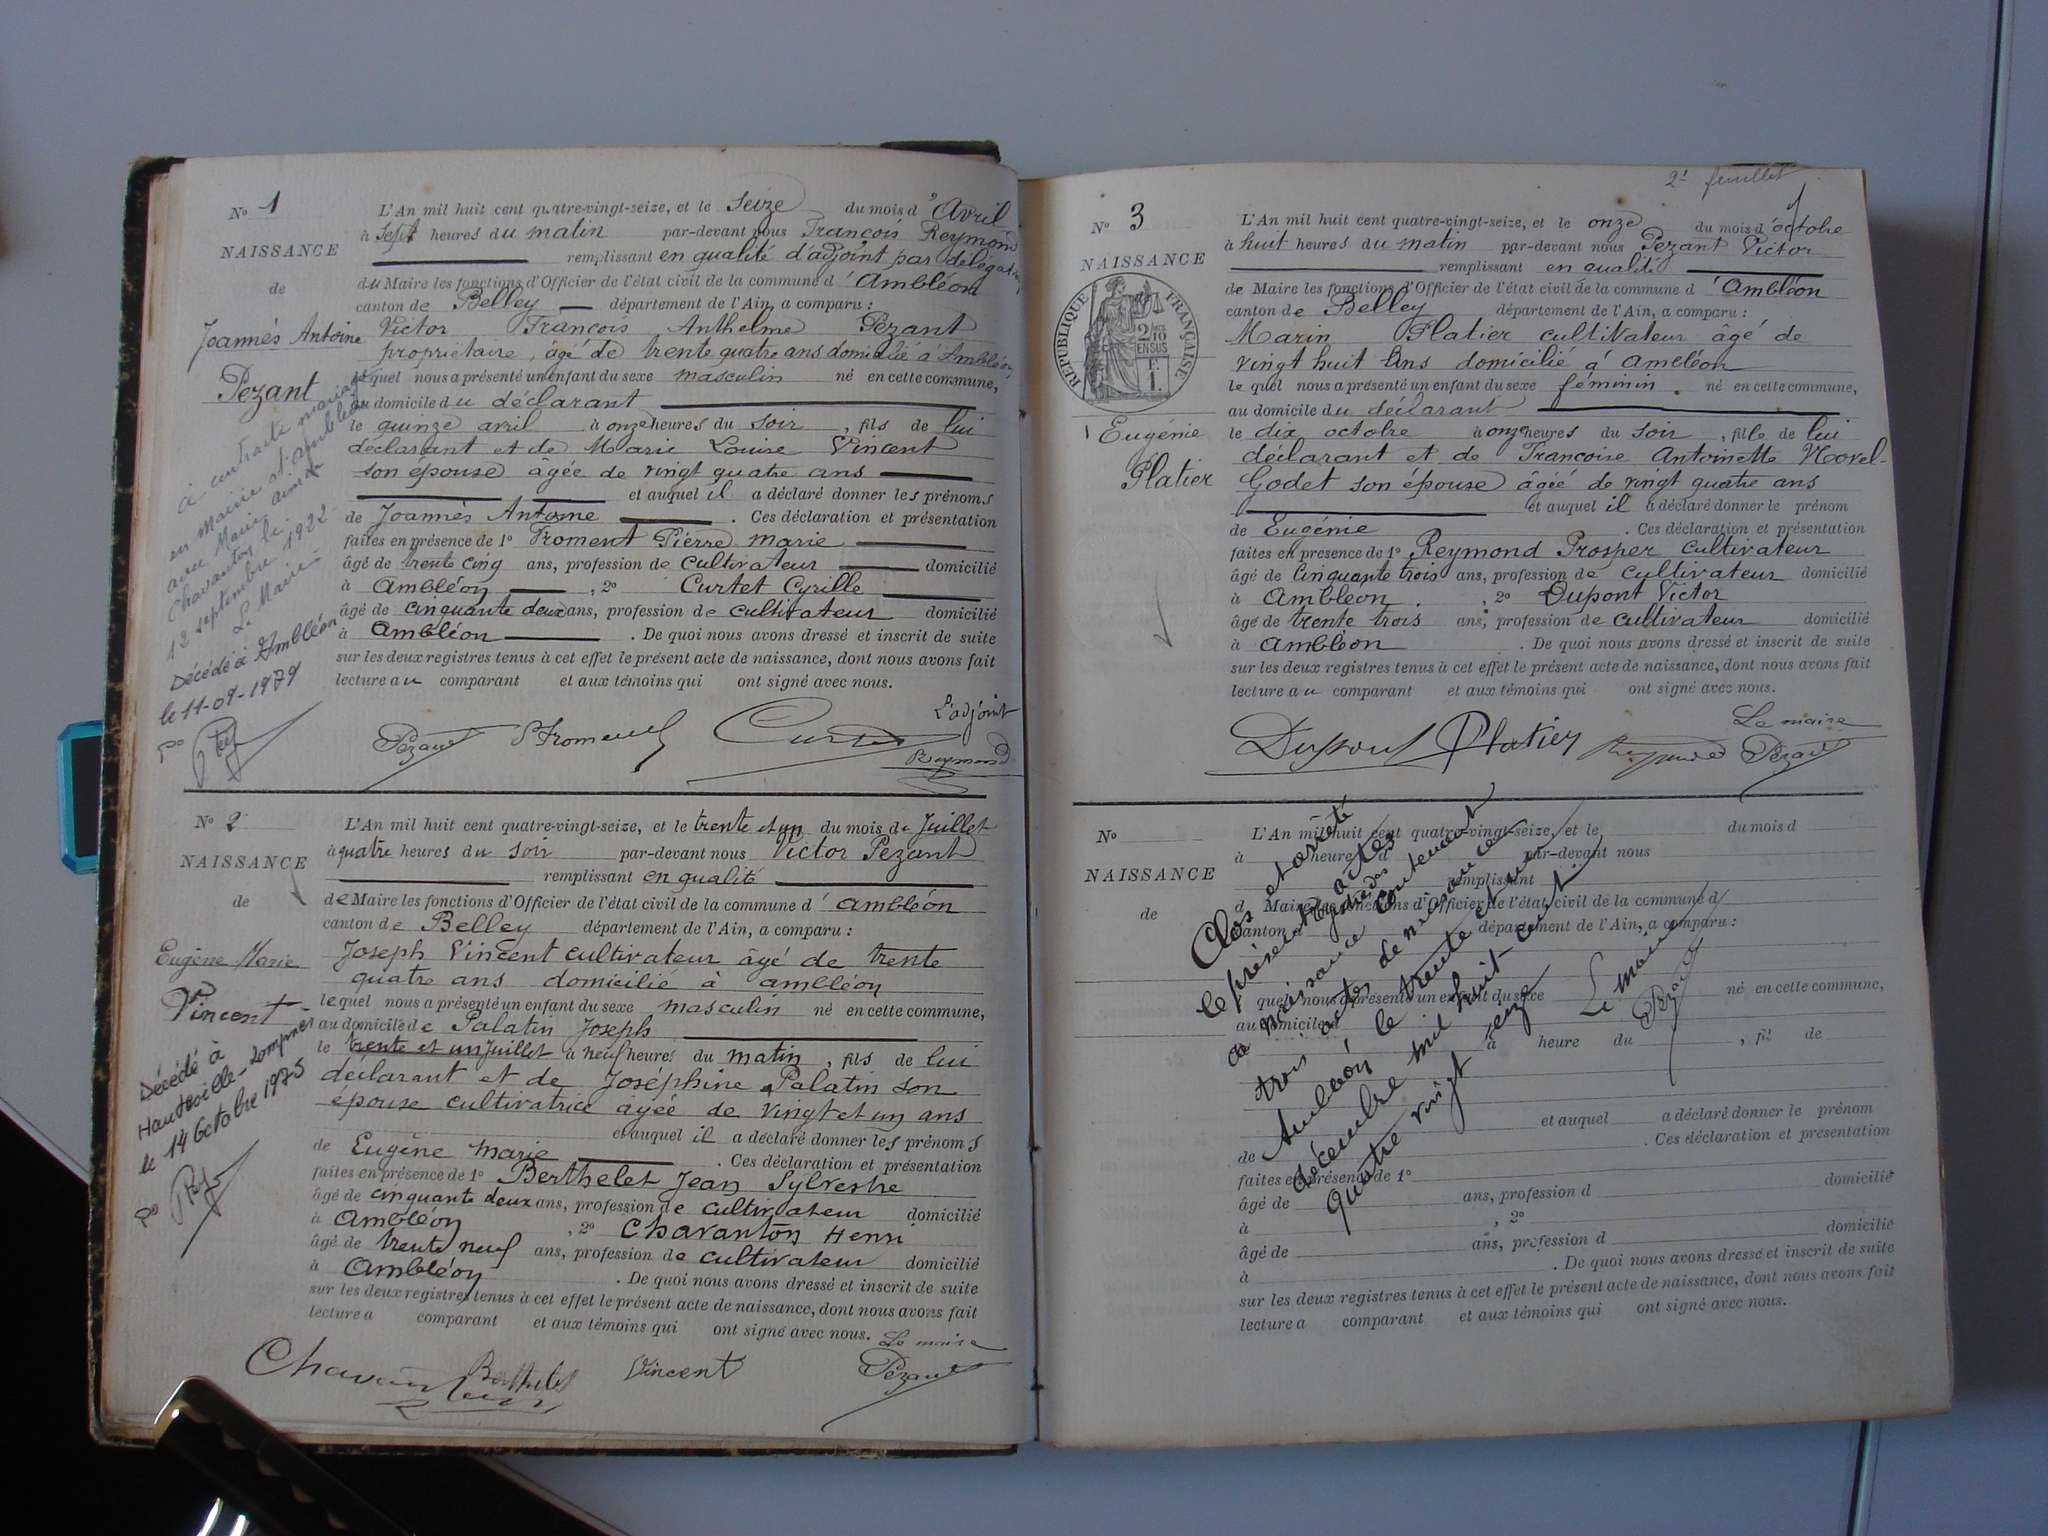 No 1
NAISSANCE
de
Joannés Antoine
Pezant
L'An mil huit cent quatre-vingt-seize, et le Seize du mois d'Avril
à sept heures du matin par-devant nous François Reymond
remplissant en qualité d'adjoint par délégation
du Maire les fonctions d'Officier de l'état civil de la commune d'Ambléon
canton de Belley département de l'Ain, a comparu :
Victor François Anthelme Pezant
propriétaire, âgé de trente quatre ans domicilié à Ambléon
lequel nous a présenté un enfant du sexe masculin né en cette commune,
au domicile du déclarant
le quinze avril à onze heures du soir, fils de lui
déclarant et de Marie Louise Vincent
son épouse âgée de vingt quatre ans
et auquel il a déclaré donner les prénoms
de Joannès Antoine. Ces déclaration et présentation
faites en présence de 1o Froment Pierre marie
âgé de trente cinq ans, profession de cultivateur domicilié
à Ambléon, 2o Curtet Cyrille
âgé de cinquante deux ans, profession de cultivateur domicilié
à Ambléon. De quoi nous avons dressé et inscrit de suite
sur les deux registres tenus à cet effet le présent acte de naissance, dont nous avons fait
lecture au comparant et aux témoins qui ont signé avec nous.
à contracté mariage
en Mairie d'Ambléon
avec Marie
Chavanton le
13 septembre 1922
Le Maire
Décédé à Ambléon
le 11-09-1979
L'adjoint
Pezant Froment Curtet Reymond
No 2
NAISSANCE
de
Eugène Marie
Vincent
L'An mil huit cent quatre-vingt-seize, et le trente et un du mois de Juillet
à quatre heures du soir par-devant nous Victor Pezant
remplissant en qualité
de Maire les fonctions d'Officier de l'état civil de la commune d'ambléon
canton de Belley département de l'Ain, a comparu :
Joseph Vincent cultivateur âgé de trente
quatre ans domicilié à ambléon
lequel nous a présenté un enfant du sexe masculin né en cette commune,
au domicile de Palatin Joseph
le trente et un Juillet à neuf heures du matin, fils de lui
déclarant et de Joséphine Palatin son
épouse cultivatrice âgée de vingt et un ans
et auquel il a déclaré donner les prénoms
de Eugène marie. Ces déclaration et présentation
faites en présence de 1o Berthelet Jean Sylvestre
âgé de cinquante deux ans, profession de cultivateur domicilié
à Ambléon, 2o Chavanton Henri
âgé de trente neuf ans, profession de cultivateur domicilié
à Ambléon. De quoi nous avons dressé et inscrit de suite
sur les deux registres tenus à cet effet le présent acte de naissance, dont nous avons fait
lecture a comparant et aux témoins qui ont signé avec nous.
Décédé à
Hauteville-Lompnes
le 14 Octobre 1975
Le maire
Chavanton Berthelet Vincent Pezant
2e feuillet
No 3
NAISSANCE
RÉPUBLIQUE FRANÇAISE
2/10 EN SUS
F. 1.
Eugénie
Platier
L'An mil huit cent quatre-vingt-seize, et le onze du mois d'octobre
à huit heures du matin par-devant nous Pezant Victor
remplissant en qualité
de Maire les fonctions d'Officier de l'état civil de la commune d'Ambléon
canton de Belley département de l'Ain, a comparu :
Marin Platier cultivateur âgé de
vingt huit ans domicilié à ambléon
lequel nous a présenté un enfant du sexe féminin né en cette commune,
au domicile du déclarant
le dix octobre à onze heures du soir, fille de lui
déclarant et de Françoise Antoinette Novel-
Godet son épouse âgée de vingt quatre ans
et auquel il a déclaré donner le prénom
de Eugénie. Ces déclaration et présentation
faites en présence de 1o Reymond Prosper cultivateur
âgé de Cinquante trois ans, profession de cultivateur domicilié
à Ambléon, 2o Dupont Victor
âgé de trente trois ans, profession de cultivateur domicilié
à ambléon. De quoi nous avons dressé et inscrit de suite
sur les deux registres tenus à cet effet le présent acte de naissance, dont nous avons fait
lecture au comparant et aux témoins qui ont signé avec nous.
Le maire
Dupont Platier Reymond Pezant
No
NAISSANCE
de
L'An mil huit cent quatre-vingt-seize, et le du mois d
à heure d par-devant nous
remplissant
d Maire les fonctions d'Officier de l'état civil de la commune d
canton d département de l'Ain, a comparu :
quel nous a présenté un enfant du sexe né en cette commune,
au domicile d
à heure du, fil de
et auquel a déclaré donner le prénom
de. Ces déclaration et présentation
faites en présence de 1o
âgé de ans, profession d domicilié
à, 2o
âgé de ans, profession d domicilié
à. De quoi nous avons dressé et inscrit de suite
sur les deux registres tenus à cet effet le présent acte de naissance, dont nous avons fait
lecture a comparant et aux témoins qui ont signé avec nous.
Clos et arrêté
le présent registre des actes
de naissance contenant
trois actes de naissance
Ambléon, le trente et un
décembre mil huit cent
quatre vingt seize
Le maire
Pezant